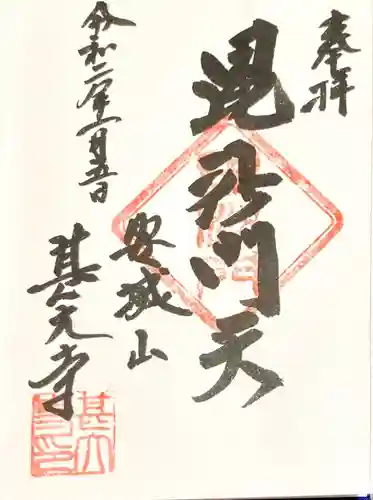 奉拝
毘沙門天
安城山
甚大寺
令和二年一月五日
甚大
寺印